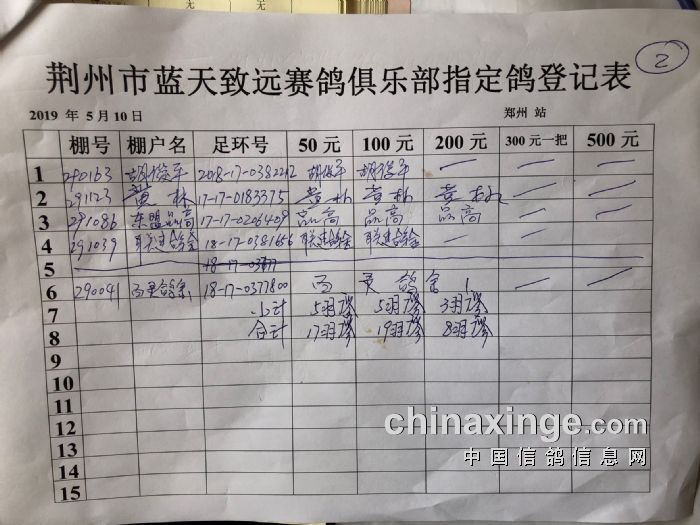 ②
荆州市蓝天致远赛鸽俱乐部指定鸽登记表
2019 年 5 月 10 日 郑州 站
棚号 棚户名 足环号 50 元 100 元 200 元 300 元一把 500 元
1 290163 2018-17-0382242 — — —
2 291123 黄林 17-17-0183375 黄林 黄林 黄林 — —
3 291086 东盟品高 17-17-0206409 品高 品高 品高 — —
4 291039 联进鸽舍 18-17-0381656 联进鸽舍 联进鸽舍 — — —
5 18-17-0377
6 290041 18-17-0377800 鸽舍 — —
7 小计 5羽 5羽 3羽
8 合计 17羽 19羽 8羽
9
10
11
12
13
14
15
chinaxinge.com
中国信鸽信息网